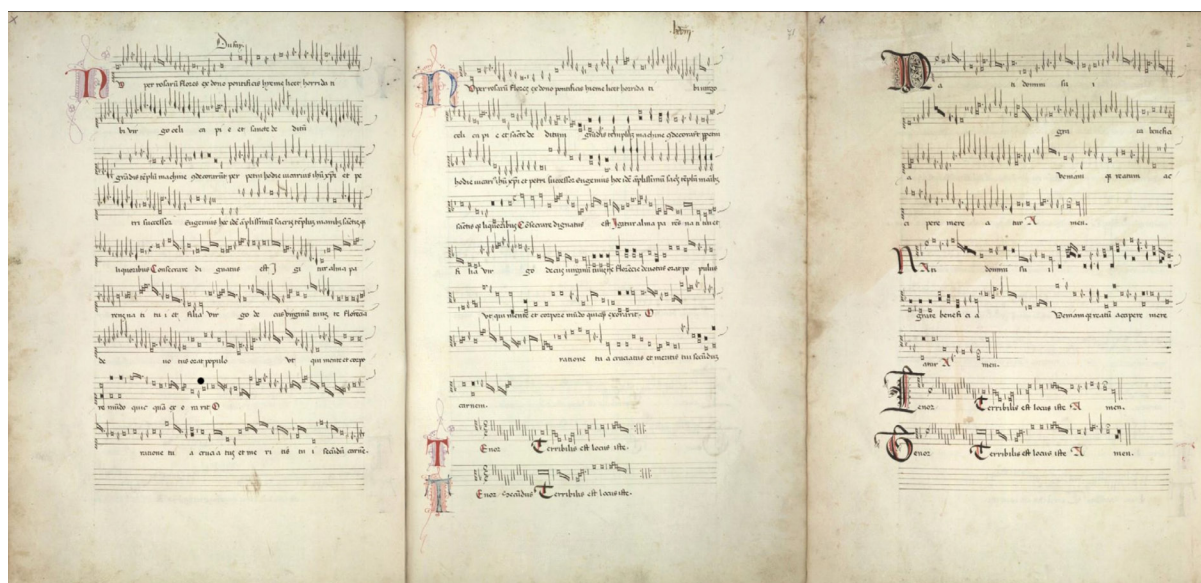 Dufay.
Nper rosarū flores ex dono pontificis hyeme licet horrida ti
bi vir go celi ca pi e et sancte de ditū
grādis tēplū machine 9decorarūt per petim hodie vicarius ihū xp̄i et pe
tri successor eugenius hoc idē āplissimū sacris tēplū manibus
liquoribus Consecrare di gnatus est I gi tur alma pa
rens na ti tu i et filia vir go de cus virginū
de uo tus orat populus vt qui mente et corpo
re mūdo quic quā ex o ra rit O
ratione tu a crucia tus et me ri tis tu i secūdū carnē.
Nper rosarū flores ex dono pontificis hieme licet horrida ti bi virgo
celi ca pi e et sācte de ditum grādis templū machine 9decorarūt ppetim
hodie vicarius ihū xp̄i et petri successor eugenius hoc idē āplissimū sacris tēplū manibus
sanctis q3 liquoribus Cōsecrare dignatus est Igitur alma pa rēs na ti nūi et
fi lia vir go decus virginum tuus te florēcie deuotus orat po pulus
Vt qui mente et corpore mūdo quicq̄ exorarit. O
ratione tu a cruciatus et meritis tui secūdū
carnem.
Tenor Terribilis est locus iste.
Tenor Secūdus Terribilis est locus iste.
Na ti domini su i
gra ta benefici
a Veniam q3 reatum ac
cipere mere a tur A men.
Na ti domini su i
grata benefici a Veniam q3 reatū accipere mere
atur A men.
Tenor Terribilis est locus iste A men.
Tenor Terribilis est locus iste A men.